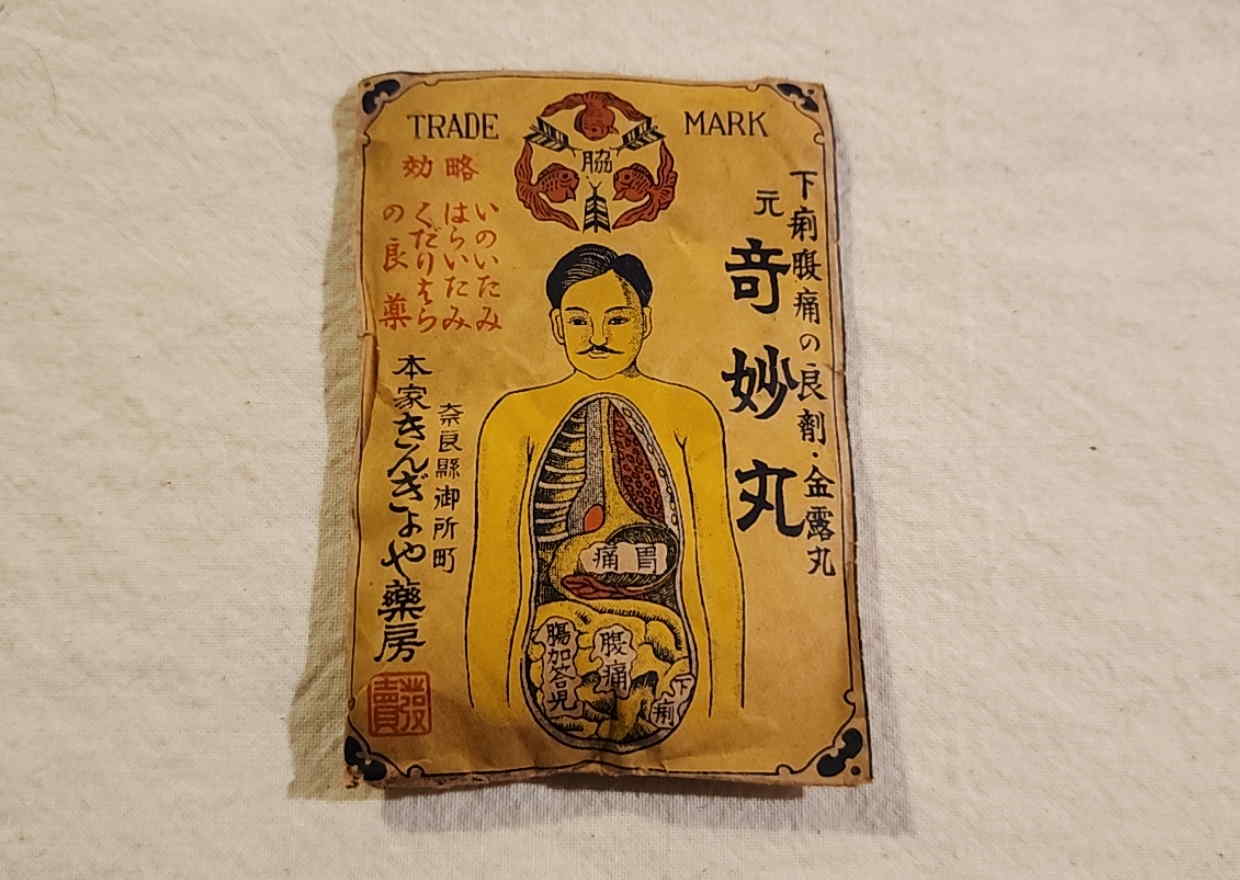 TRADE MARK
脇
下痢腹痛の良剤・金露丸
元
奇妙丸
効略
いのいたみ
はらいたみ
くだりはら
の良薬
奈良縣御所町
本家きんぎょや藥房
發賣
胃痛
腸加答児
腹痛
下痢